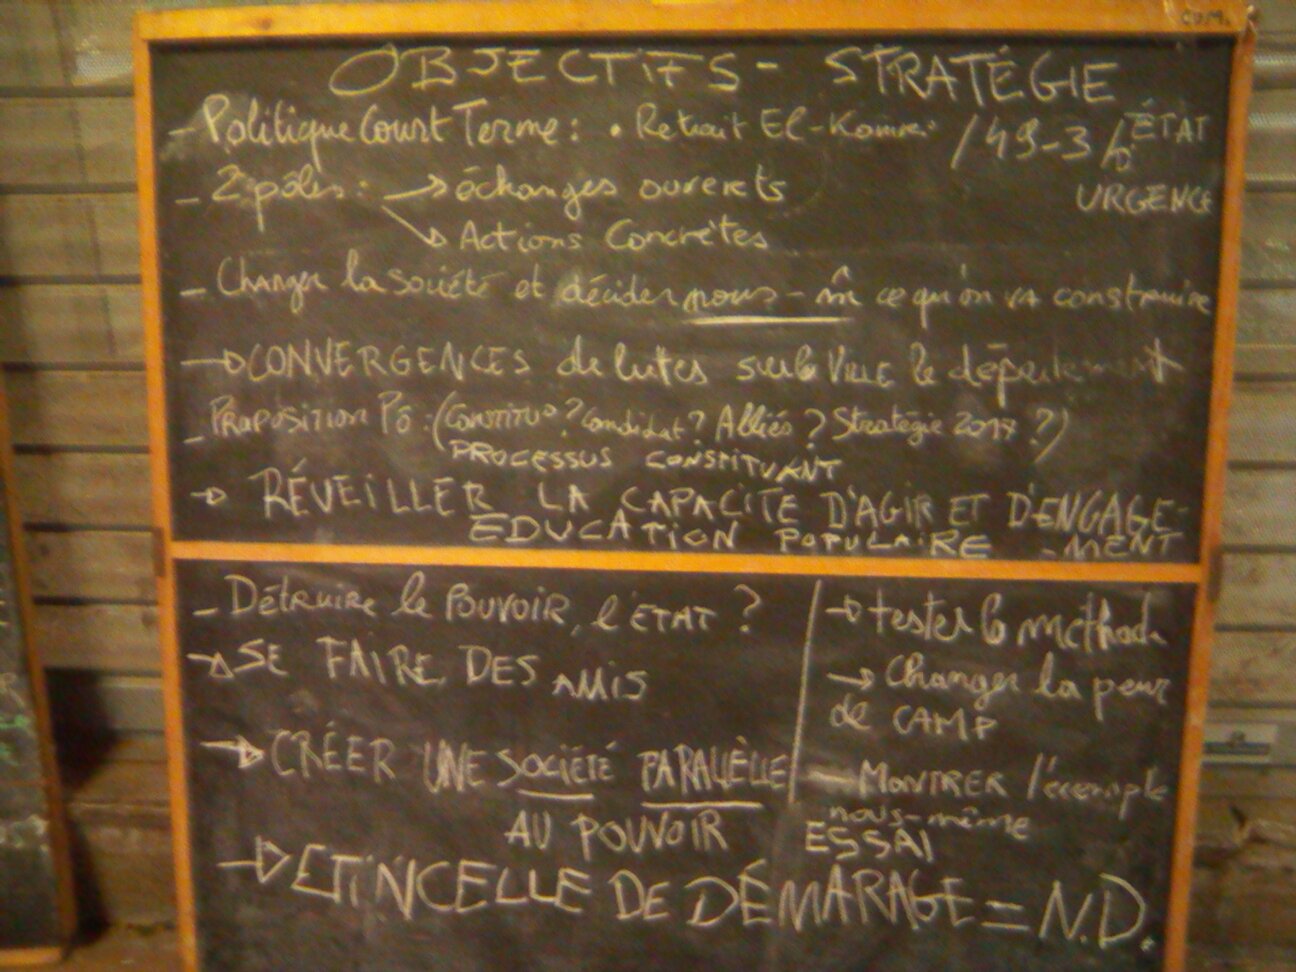 OBJECTIFS - STRATÉGIE
- Politique Court Terme : • Retrait El-Komri / 49-3 / ÉTAT D' URGENCE
- 2 pôles : → échanges ouverts
→ Actions Concrètes
- Changer la société et décider nous - m̂ ce qu'on va construire
→ CONVERGENCES de luttes sur la VILLE le département
- PROPOSITION Pô : (Constituo ? Candidat ? Alliés ? Stratégie 2017 ?)
PROCESSUS CONSTITUANT
→ RÉVEILLER LA CAPACITE D'AGIR ET D'ENGAGE-
EDUCATION POPULAIRE -MENT
- Détruire le POUVOIR, l'ETAT ?
→ SE FAIRE DES AMIS
→ CRÉER UNE SOCIÉTÉ PARALLÈLE
AU POUVOIR
→ tester la méthode
→ Changer la peur
de CAMP
- MONTRER l'exemple
nous-même
ESSAI
→ ETINCELLE DE DÉMARAGE = N.D.